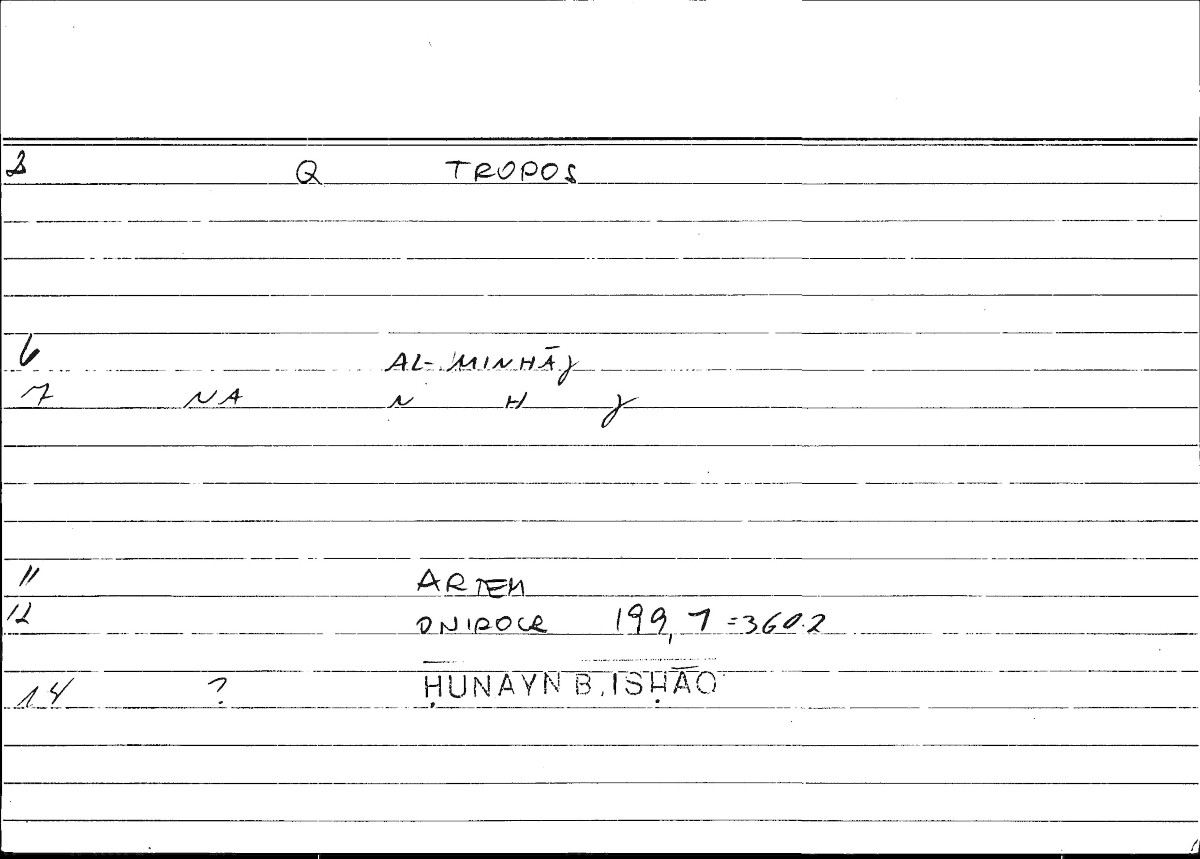 2 Q TROPOS
6 AL-MINHĀJ
7 NA N H J
11 ARTEM
12 ONIROCR 199,7=360.2
14 ? ḤUNAYN B. ISḤĀQ